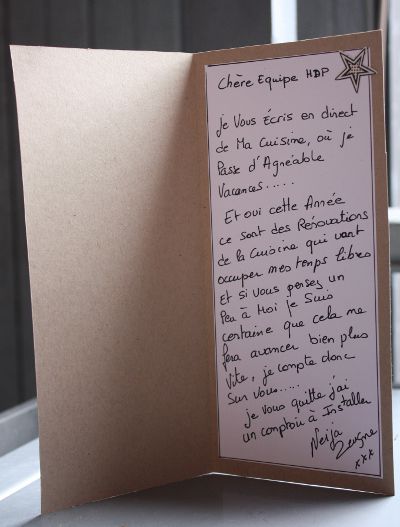 Chère Equipe HDP
je Vous Écris en direct
de Ma Cuisine, où je
Passe d'Agréable
Vacances.....
Et oui cette Année
ce sont des Rénovations
de la Cuisine qui vont
occuper mes temps libres
Et si vous pensez un
Peu à Moi je Suis
certaine que cela me
fera avancer bien plus
Vite, je compte donc
Sur Vous.....
je vous quitte j'ai
un comptoir à Installer
Neija
xxx